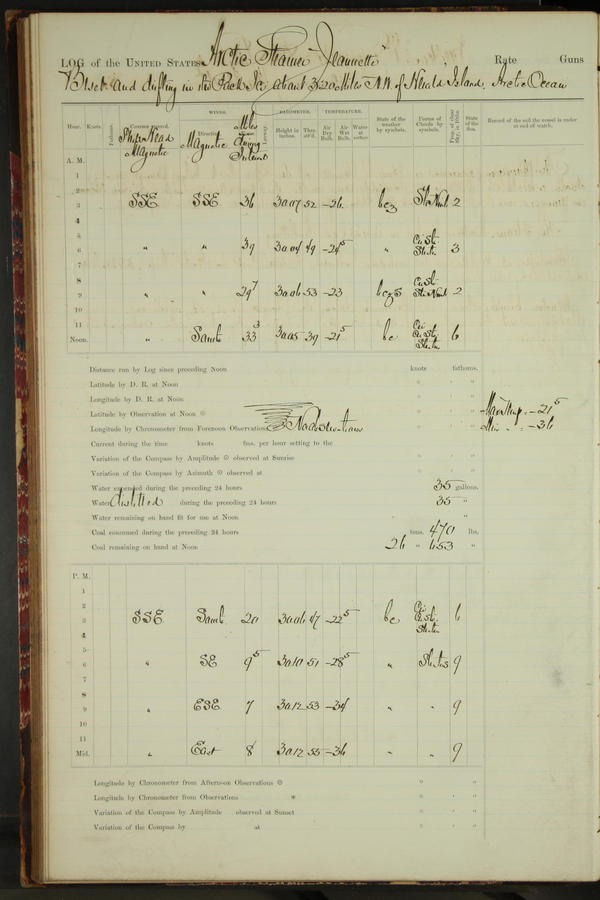 LOG of the UNITED STATES Arctic Steamer "Jeannette" Rate Guns
Beset and drifting in the Pack Ice about 320 Miles N.W. of Herald Island, Arctic Ocean
WINDS. BAROMETER. TEMPERATURE.
Hour. Knots. Fathoms. Courses steered. Direction Leeway. Height in inches. Ther. att'd. Air Dry Bulb. Air Wet Bulb. Water at surface. State of the weather by symbols. Forms of Clouds by symbols. Prop. of clear Sky, in 10ths. State of the Sea. Record of the sail the vessel is under at end of watch.
Ship's Head Magnetic Magnetic Miles during Interval
A. M.
1
2
3 SSE SSE 36 30.07 52 -26 bcz 2
4
5
6 " " 39 30.04 49 -24⁵ " Ci St. 3
7
8
9 " " 29⁷ 30.06 53 -23 Cu St. 2
10
11
Noon. " South 33³ 30.05 39 -21⁵ bc 6
Distance run by Log since preceding Noon knots fathoms.
Latitude by D. R. at Noon
Longitude by D. R. at Noon
Latitude by Observation at Noon Max Temp. -21⁵
Longitude by Chronometer from Forenoon Observations No observations Min " " -36
Current during the time knots fms. per hour setting to the
Variation of the Compass by Amplitude observed at Sunrise
Variation of the Compass by Azimuth observed at
Water expended during the preceding 24 hours 35 gallons.
Water distilled during the preceding 24 hours 35 "
Water remaining on hand fit for use at Noon "
Coal consumed during the preceding 24 hours tons. 470 lbs.
Coal remaining on hand at Noon 26 " 653 "
P. M.
1
2
3 SSE South 20 30.06 47 -22⁵ bc 6
4
5
6 " SE 9⁵ 30.10 51 -28⁵ " 9
7
8
9 " ESE 7 30.12 53 -34 " " 9
10
11
Mid. " East 8 30.12 55 -36 " " 9
Longitude by Chronometer from Afternoon Observations
Longitude by Chronometer from Observations
Variation of the Compass by Amplitude observed at Sunset
Variation of the Compass by at